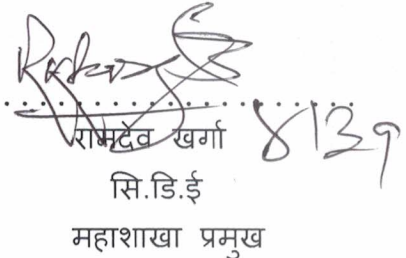 रामदेव खर्गा ४/३१
सि.डि.ई
महाशाखा प्रमुख